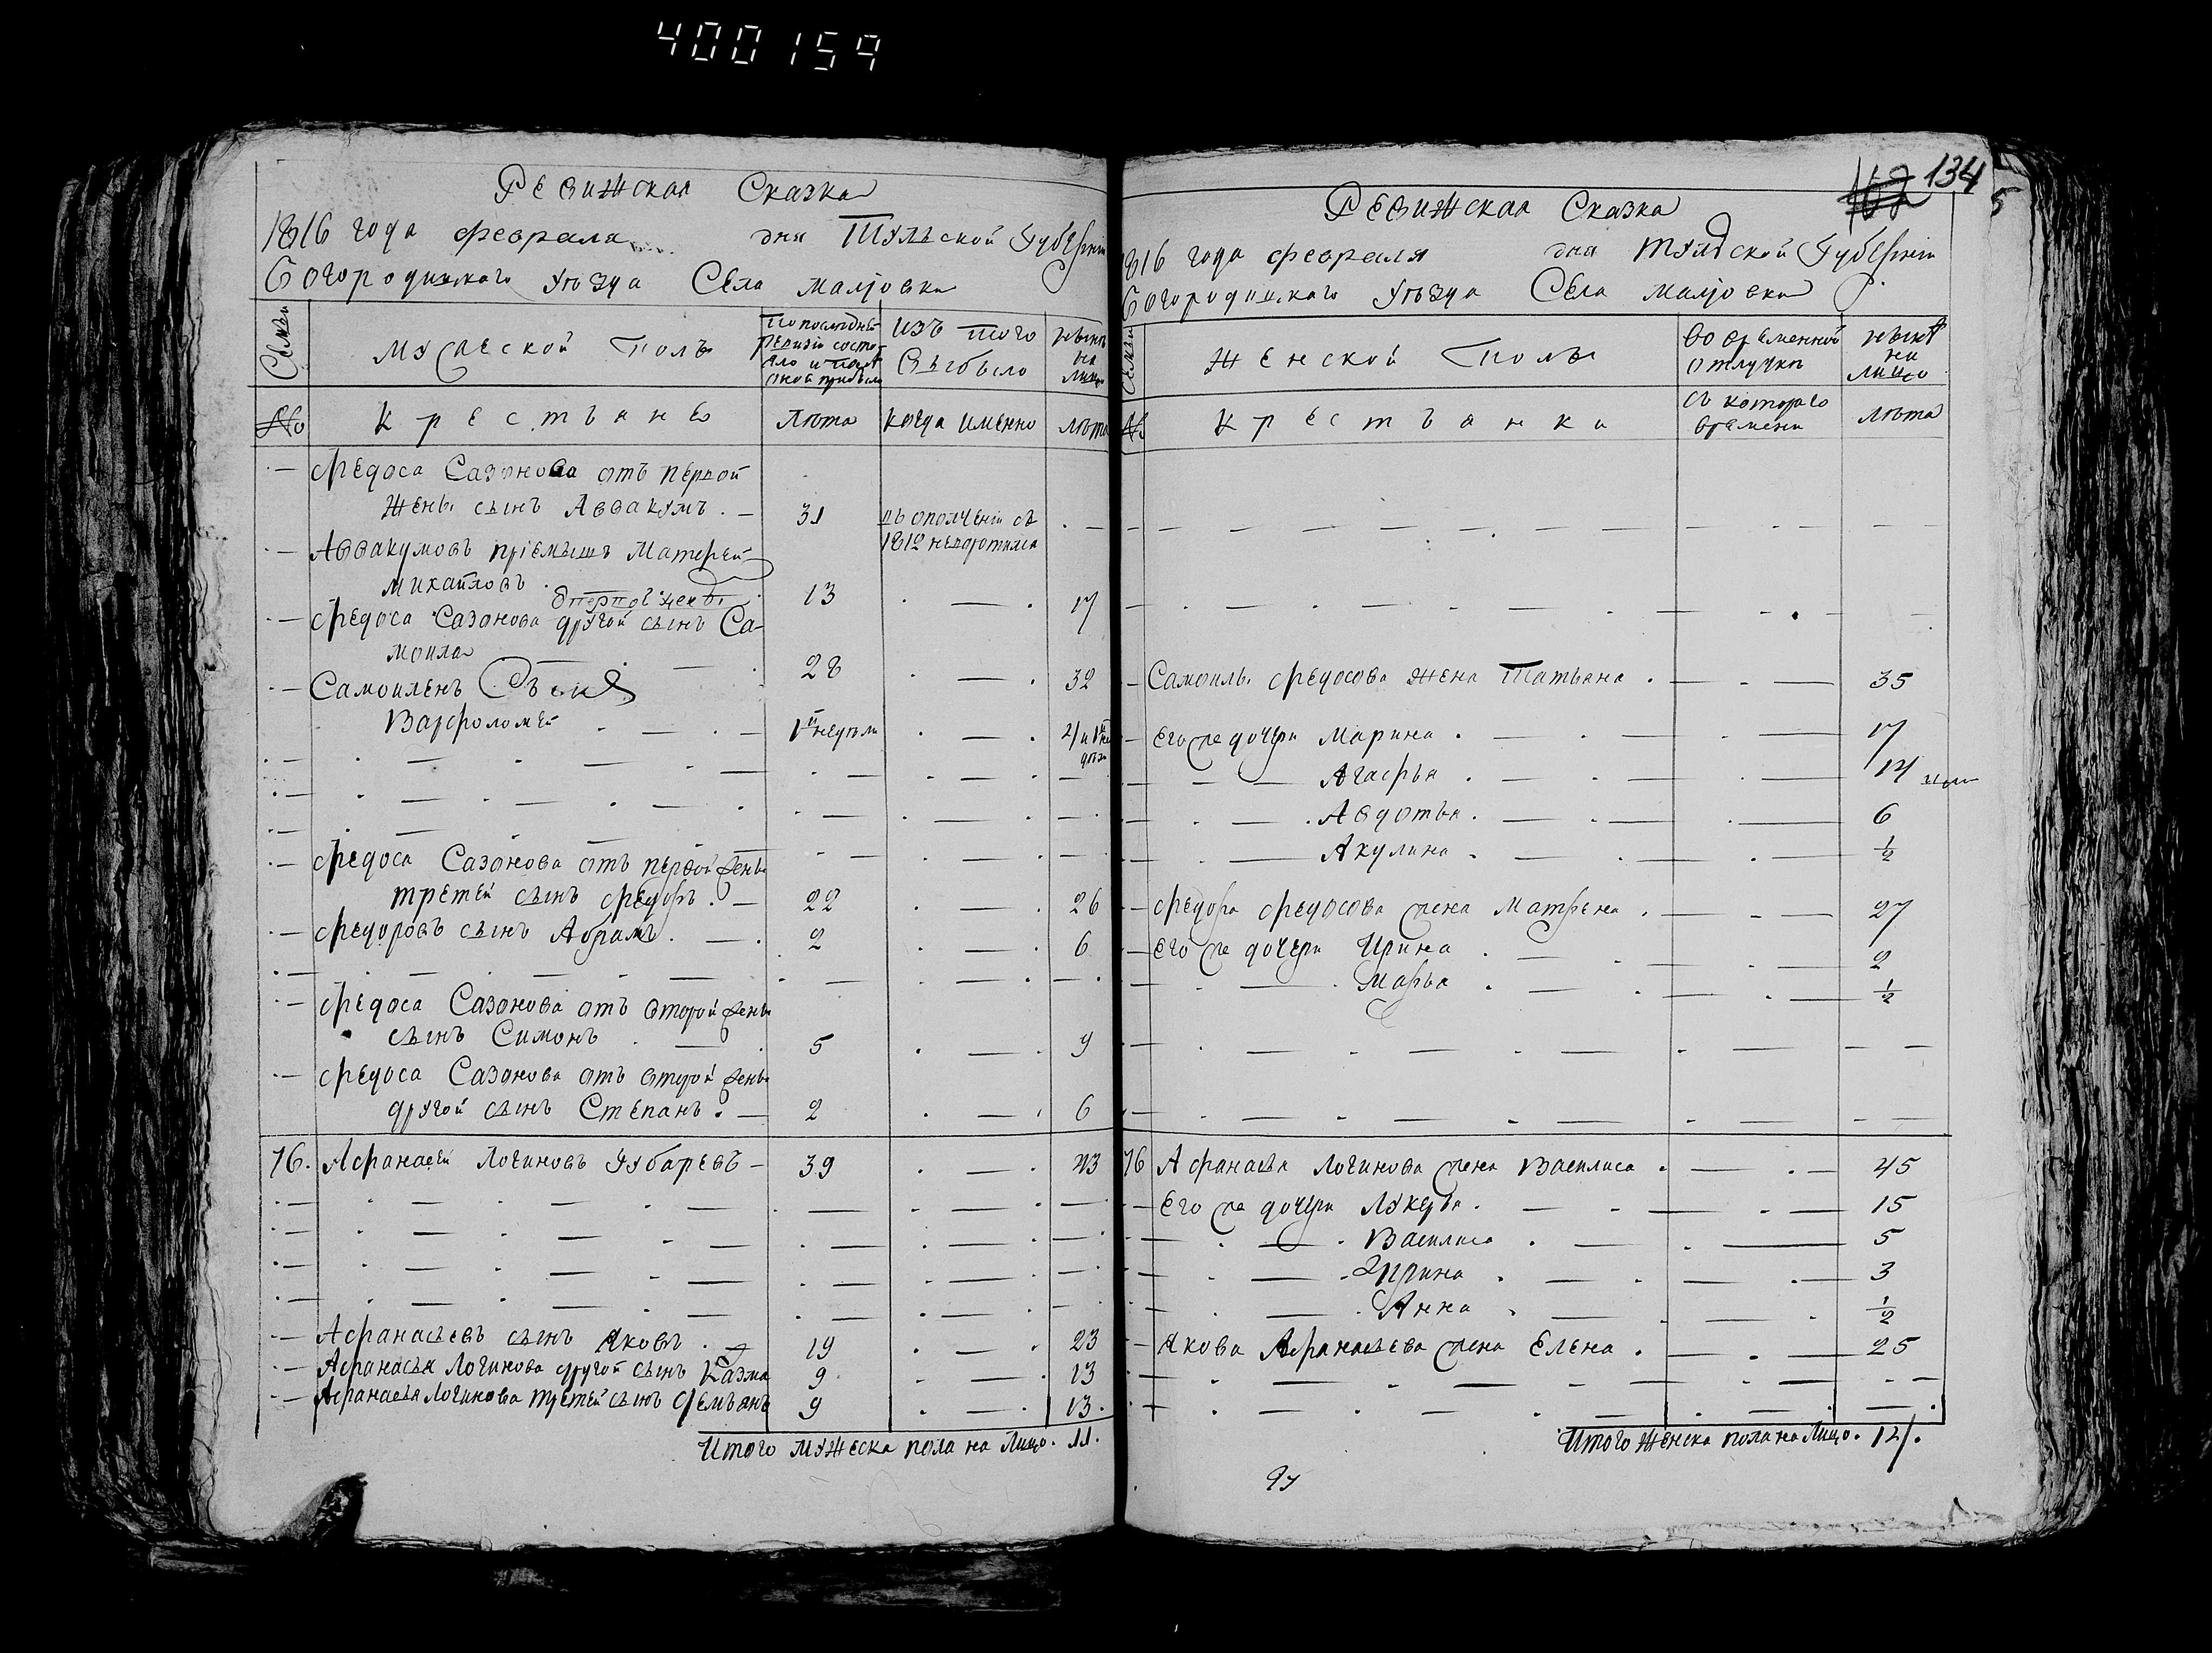 400159
Ревижская Сказка
1816 года февраля дня Тульской Губернiи
Богородицкаго уѣзда Села малiовки
Семьи
мужеской полъ
По последней ревизiи состояло и после оной прибыло
Изъ того выбыло
нынѣ на лицо
№
Крестьяне
Лѣта
когда именно
лѣта
Федоса Сазонова отъ первой
жены сынъ Аввакумъ 31 въ ополченiи съ
1812 неворотился
Аввакумовъ прiемышъ Матфей
Михайловъ 13 17
отъ первой жены
Федоса Сазонова другой сынъ Са-
мойла 28 32
Самойленъ Сынъ
Варфоломей 1й недѣли 4 и 1й недѣли
Федоса Сазонова отъ первой жены
третей сынъ Федоръ 22 26
Федоровъ сынъ Абрамъ 2 6
Федоса Сазонова отъ второй жены
сынъ Симонъ 5 9
Федоса Сазонова отъ второй жены
другой сынъ Степанъ 2 6
76. Афанасей Логиновъ Губаревъ 39 43
Афанасьевъ сынъ Яковъ 19 23
Афанасья Логинова другой сынъ Казма 9 13
Афанасья Логинова третей сынъ Демьянъ 9 13.
Итого мужеска пола на Лицо. 11.
102 134
5
Ревижская Сказка
1816 года февраля дня Тульской Губернiи
Богородицкаго уѣзда Села малiовки
Семьи
женской полъ
Во временной отлучкѣ
нынѣ на лицо
№
Крестьянки
съ котораго времени
лѣта
Самойлы Федосова жена Татьяна 35
Его же дочери Марина 17
Агафья 14
Авдотья 6
Акулина ½
Федора Федосова жена Матрена 27
Его же дочери Ирина 2
Марья ½
76 Афанасья Логинова жена Василиса 45
Его же дочери Лукерья 15
Василиса 5
Ирина 3
Анна ½
Якова Афанасьева жена Елена 25
Итого женска пола на Лицо. 14.